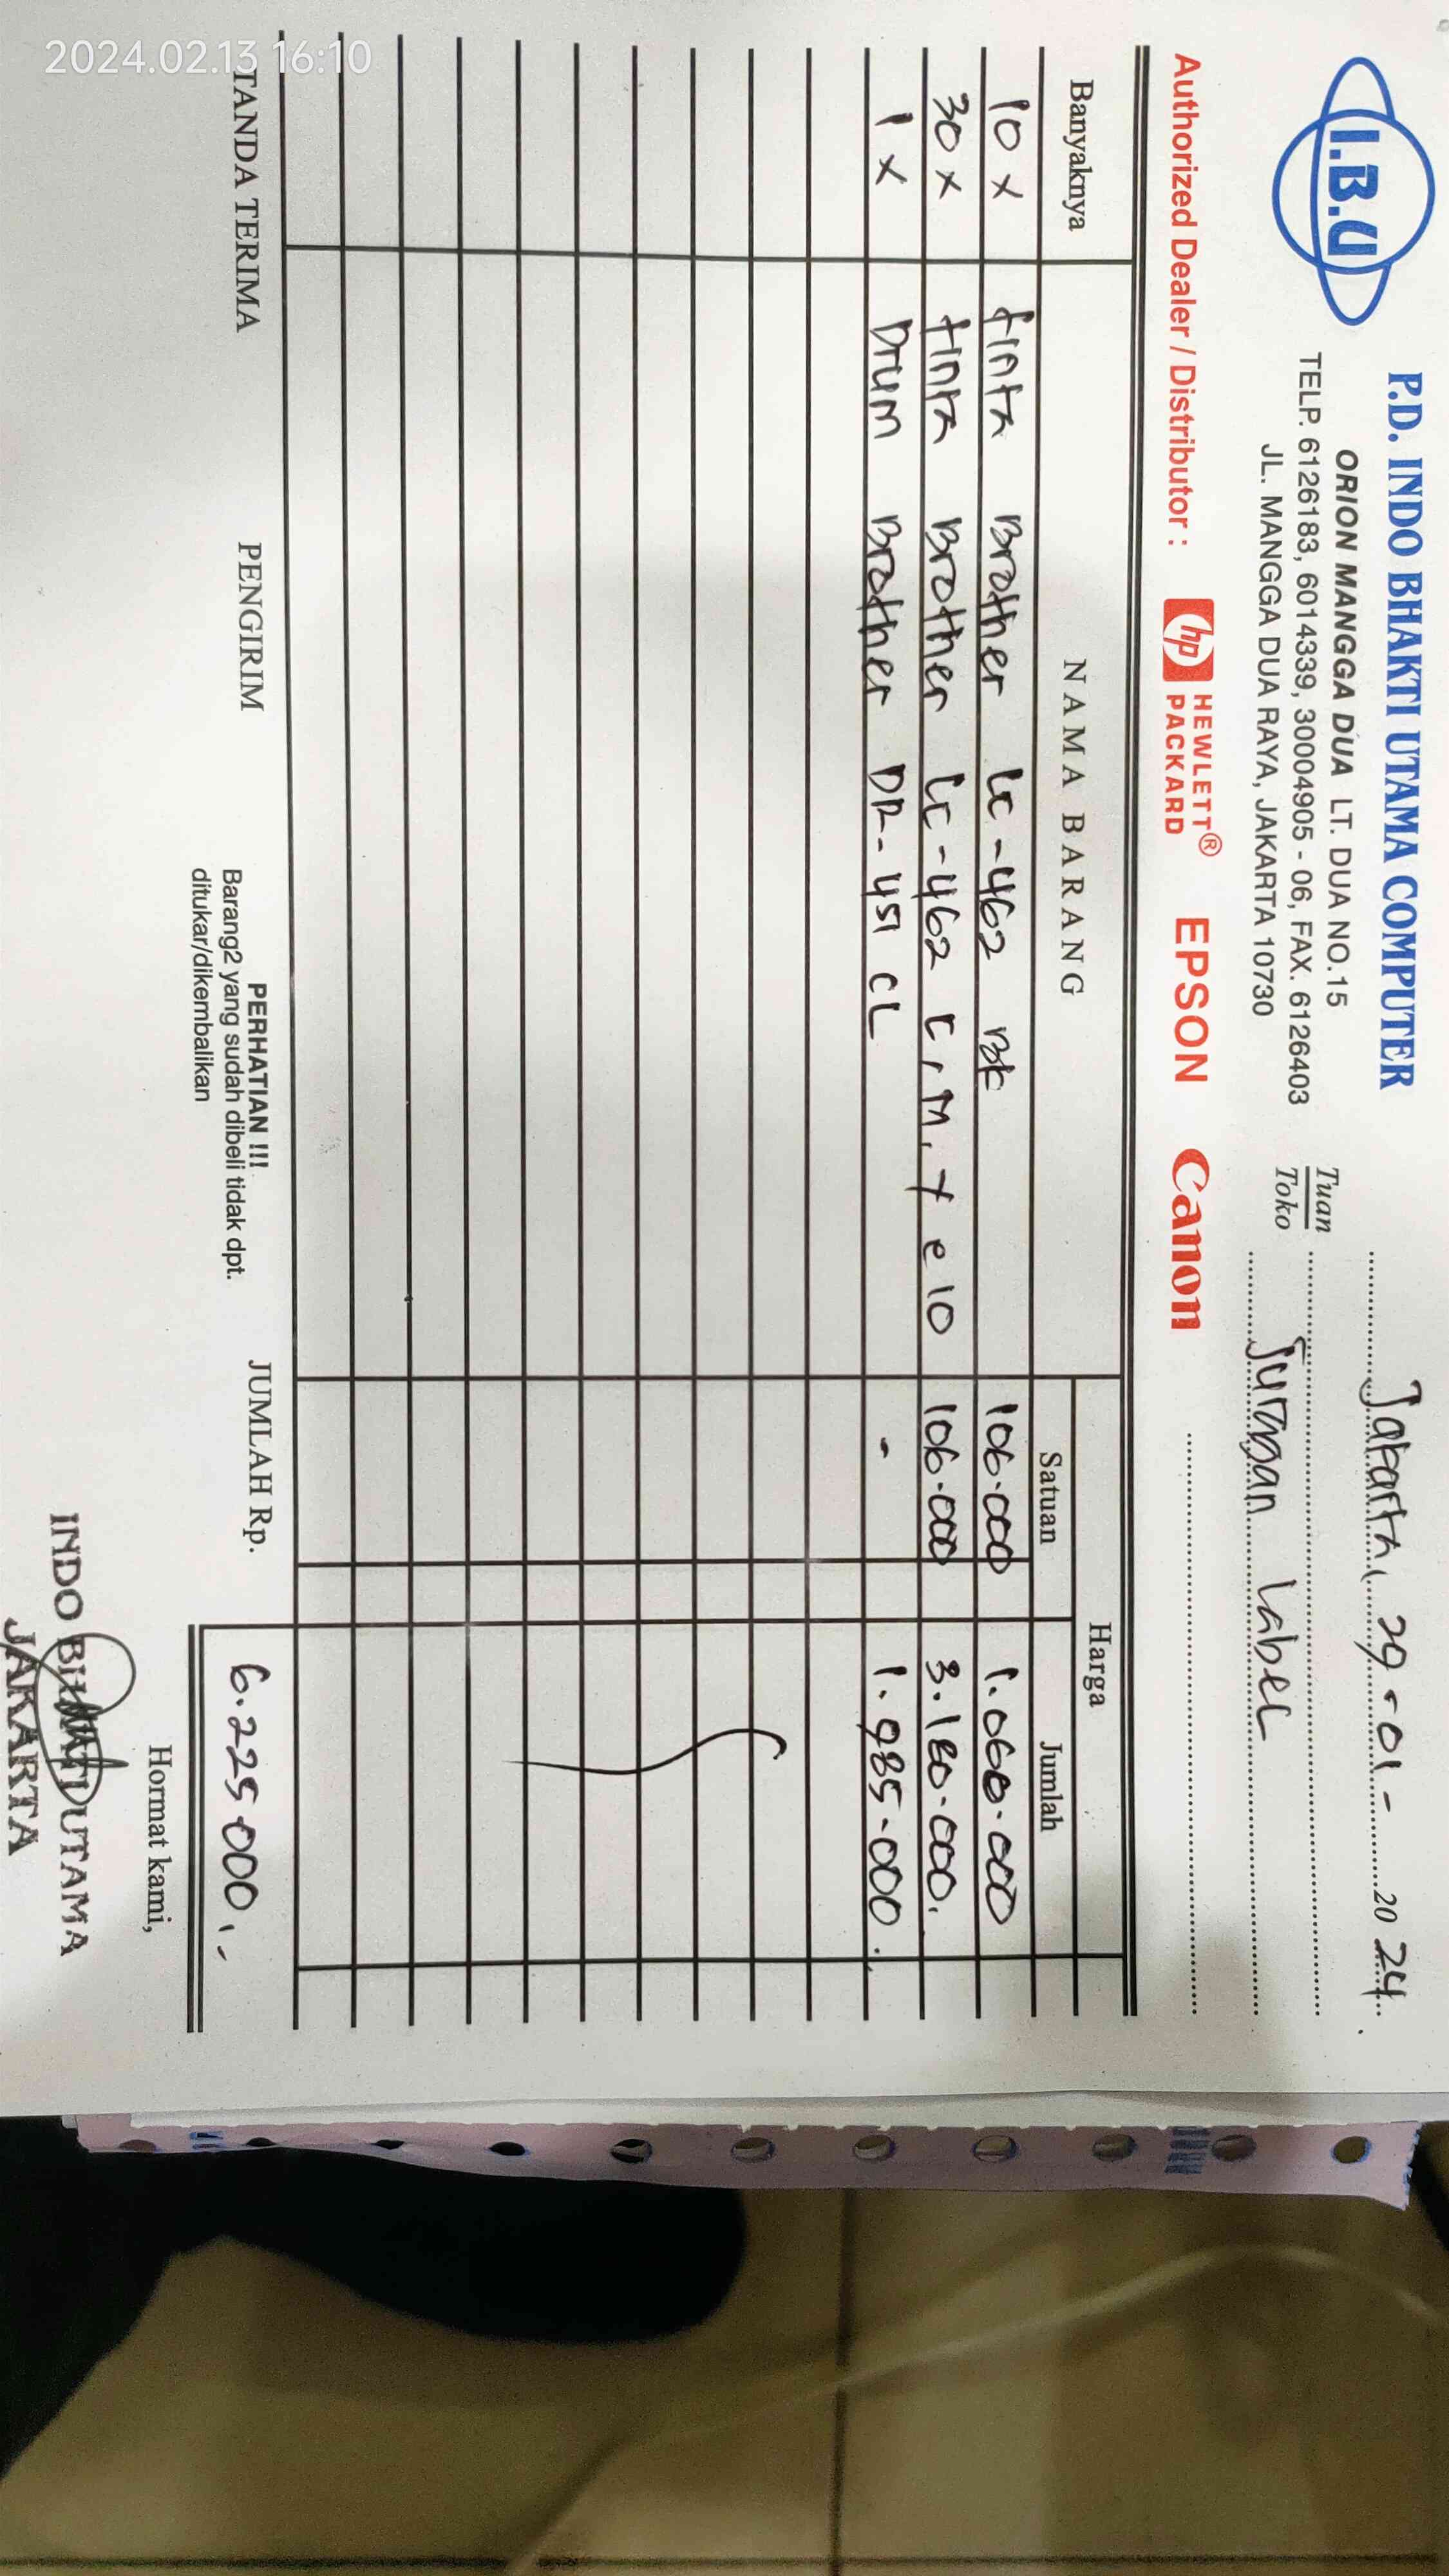 I.B.U
P.D. INDO BHAKTI UTAMA COMPUTER
ORION MANGGA DUA LT. DUA NO.15
TELP. 6126183, 6014339, 30004905 - 06, FAX. 6126403
JL. MANGGA DUA RAYA, JAKARTA 10730
Jakarta, 29-01- 2024
Tuan
Toko Juragan Label
Authorized Dealer / Distributor : hp HEWLETT® PACKARD EPSON Canon
Banyaknya NAMA BARANG Harga
Satuan Jumlah
10 x tinta Brother LC-462 BK 106.000 1.060.000
30 x tinta Brother LC-462 C, M, Y @ 10 106.000 3.180.000.
1 x Drum Brother DR-451 CL - 1.985.000.
TANDA TERIMA PENGIRIM JUMLAH Rp. 6.225.000,-
PERHATIAN !!!
Barang2 yang sudah dibeli tidak dpt.
ditukar/dikembalikan
Hormat kami,
INDO BHAKTI UTAMA
JAKARTA
2024.02.13 16:10